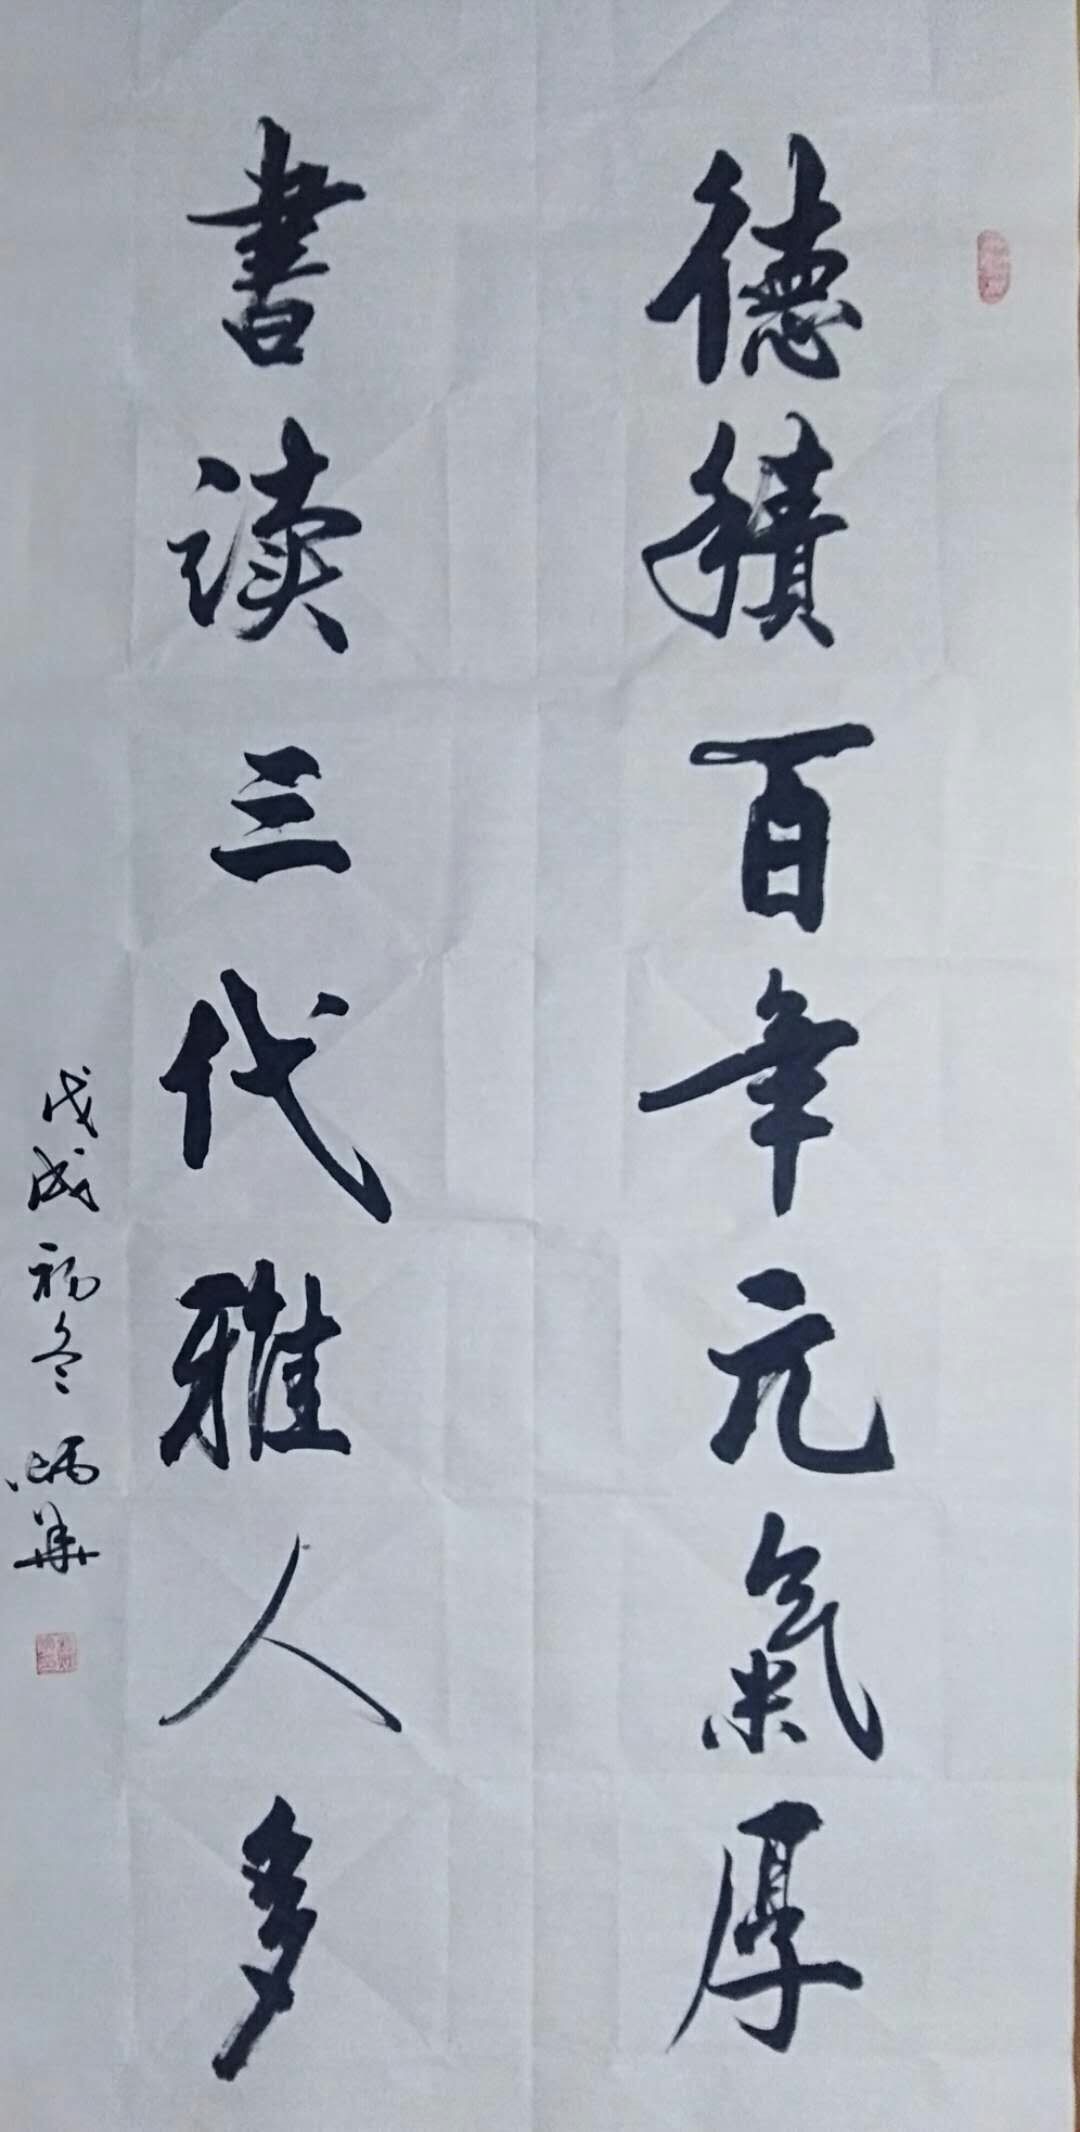 德積百年元氣厚
書读三代雅人多
戊戌初冬炳華